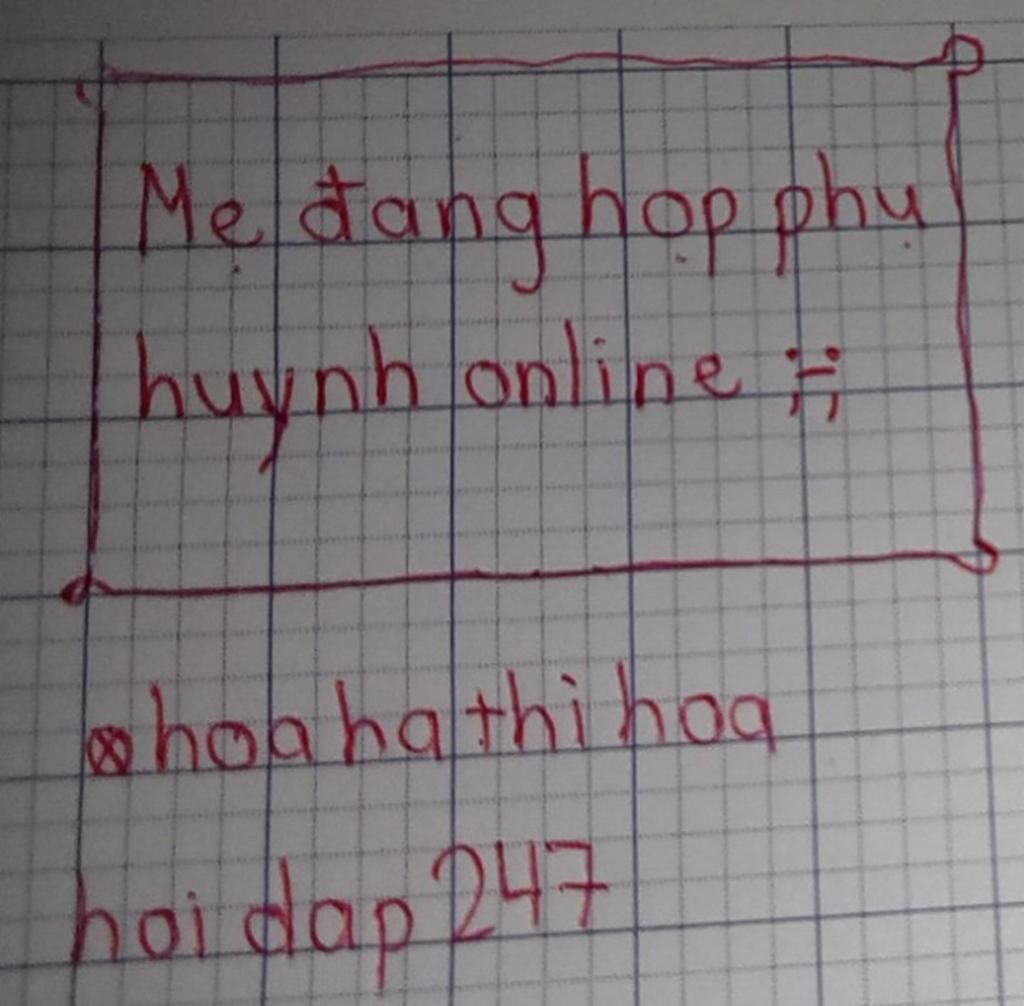 Mẹ đang họp phụ
huynh online ;-;
hoahathihoa
hoidap247